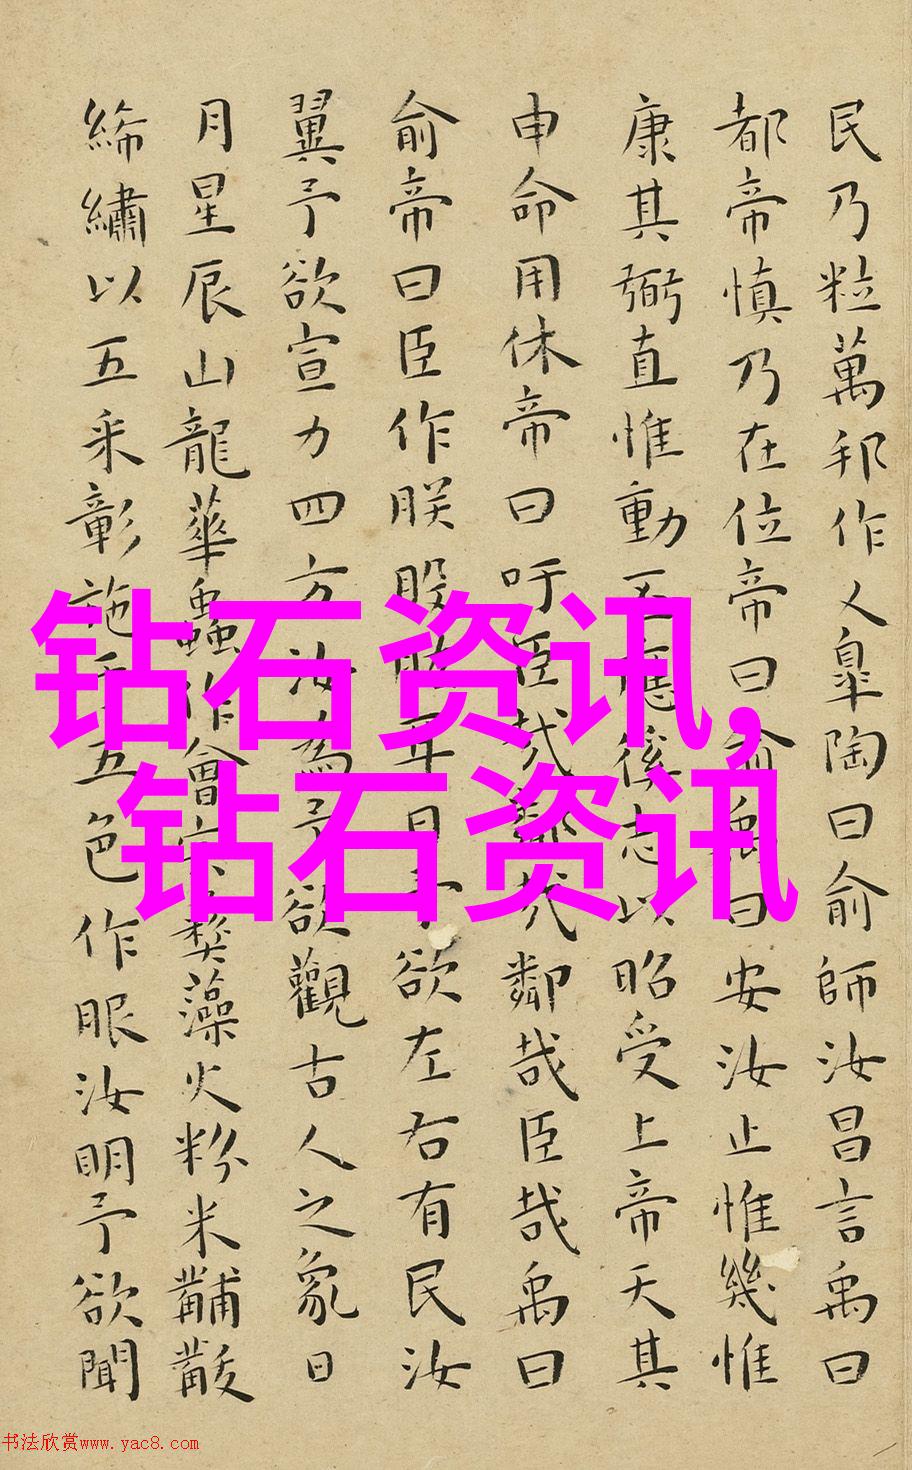 民乃粒萬邦作人皐陶曰俞師汝昌言禹曰
都帝慎乃在位帝曰俞禹曰安汝止惟幾惟
康其弼直惟動丕應徯志以昭受上帝天其
申命用休帝曰吁臣哉鄰哉鄰哉臣哉禹曰
俞帝曰臣作朕股肱耳目予欲左右有民汝
翼予欲宣力四方汝為予欲觀古人之象日
月星辰山龍華蟲作會宗彝藻火粉米黼黻
絺繡以五采彰施于五色作服汝明予欲聞
钻石资讯,
钻石资讯
书法欣赏www.yac8.com